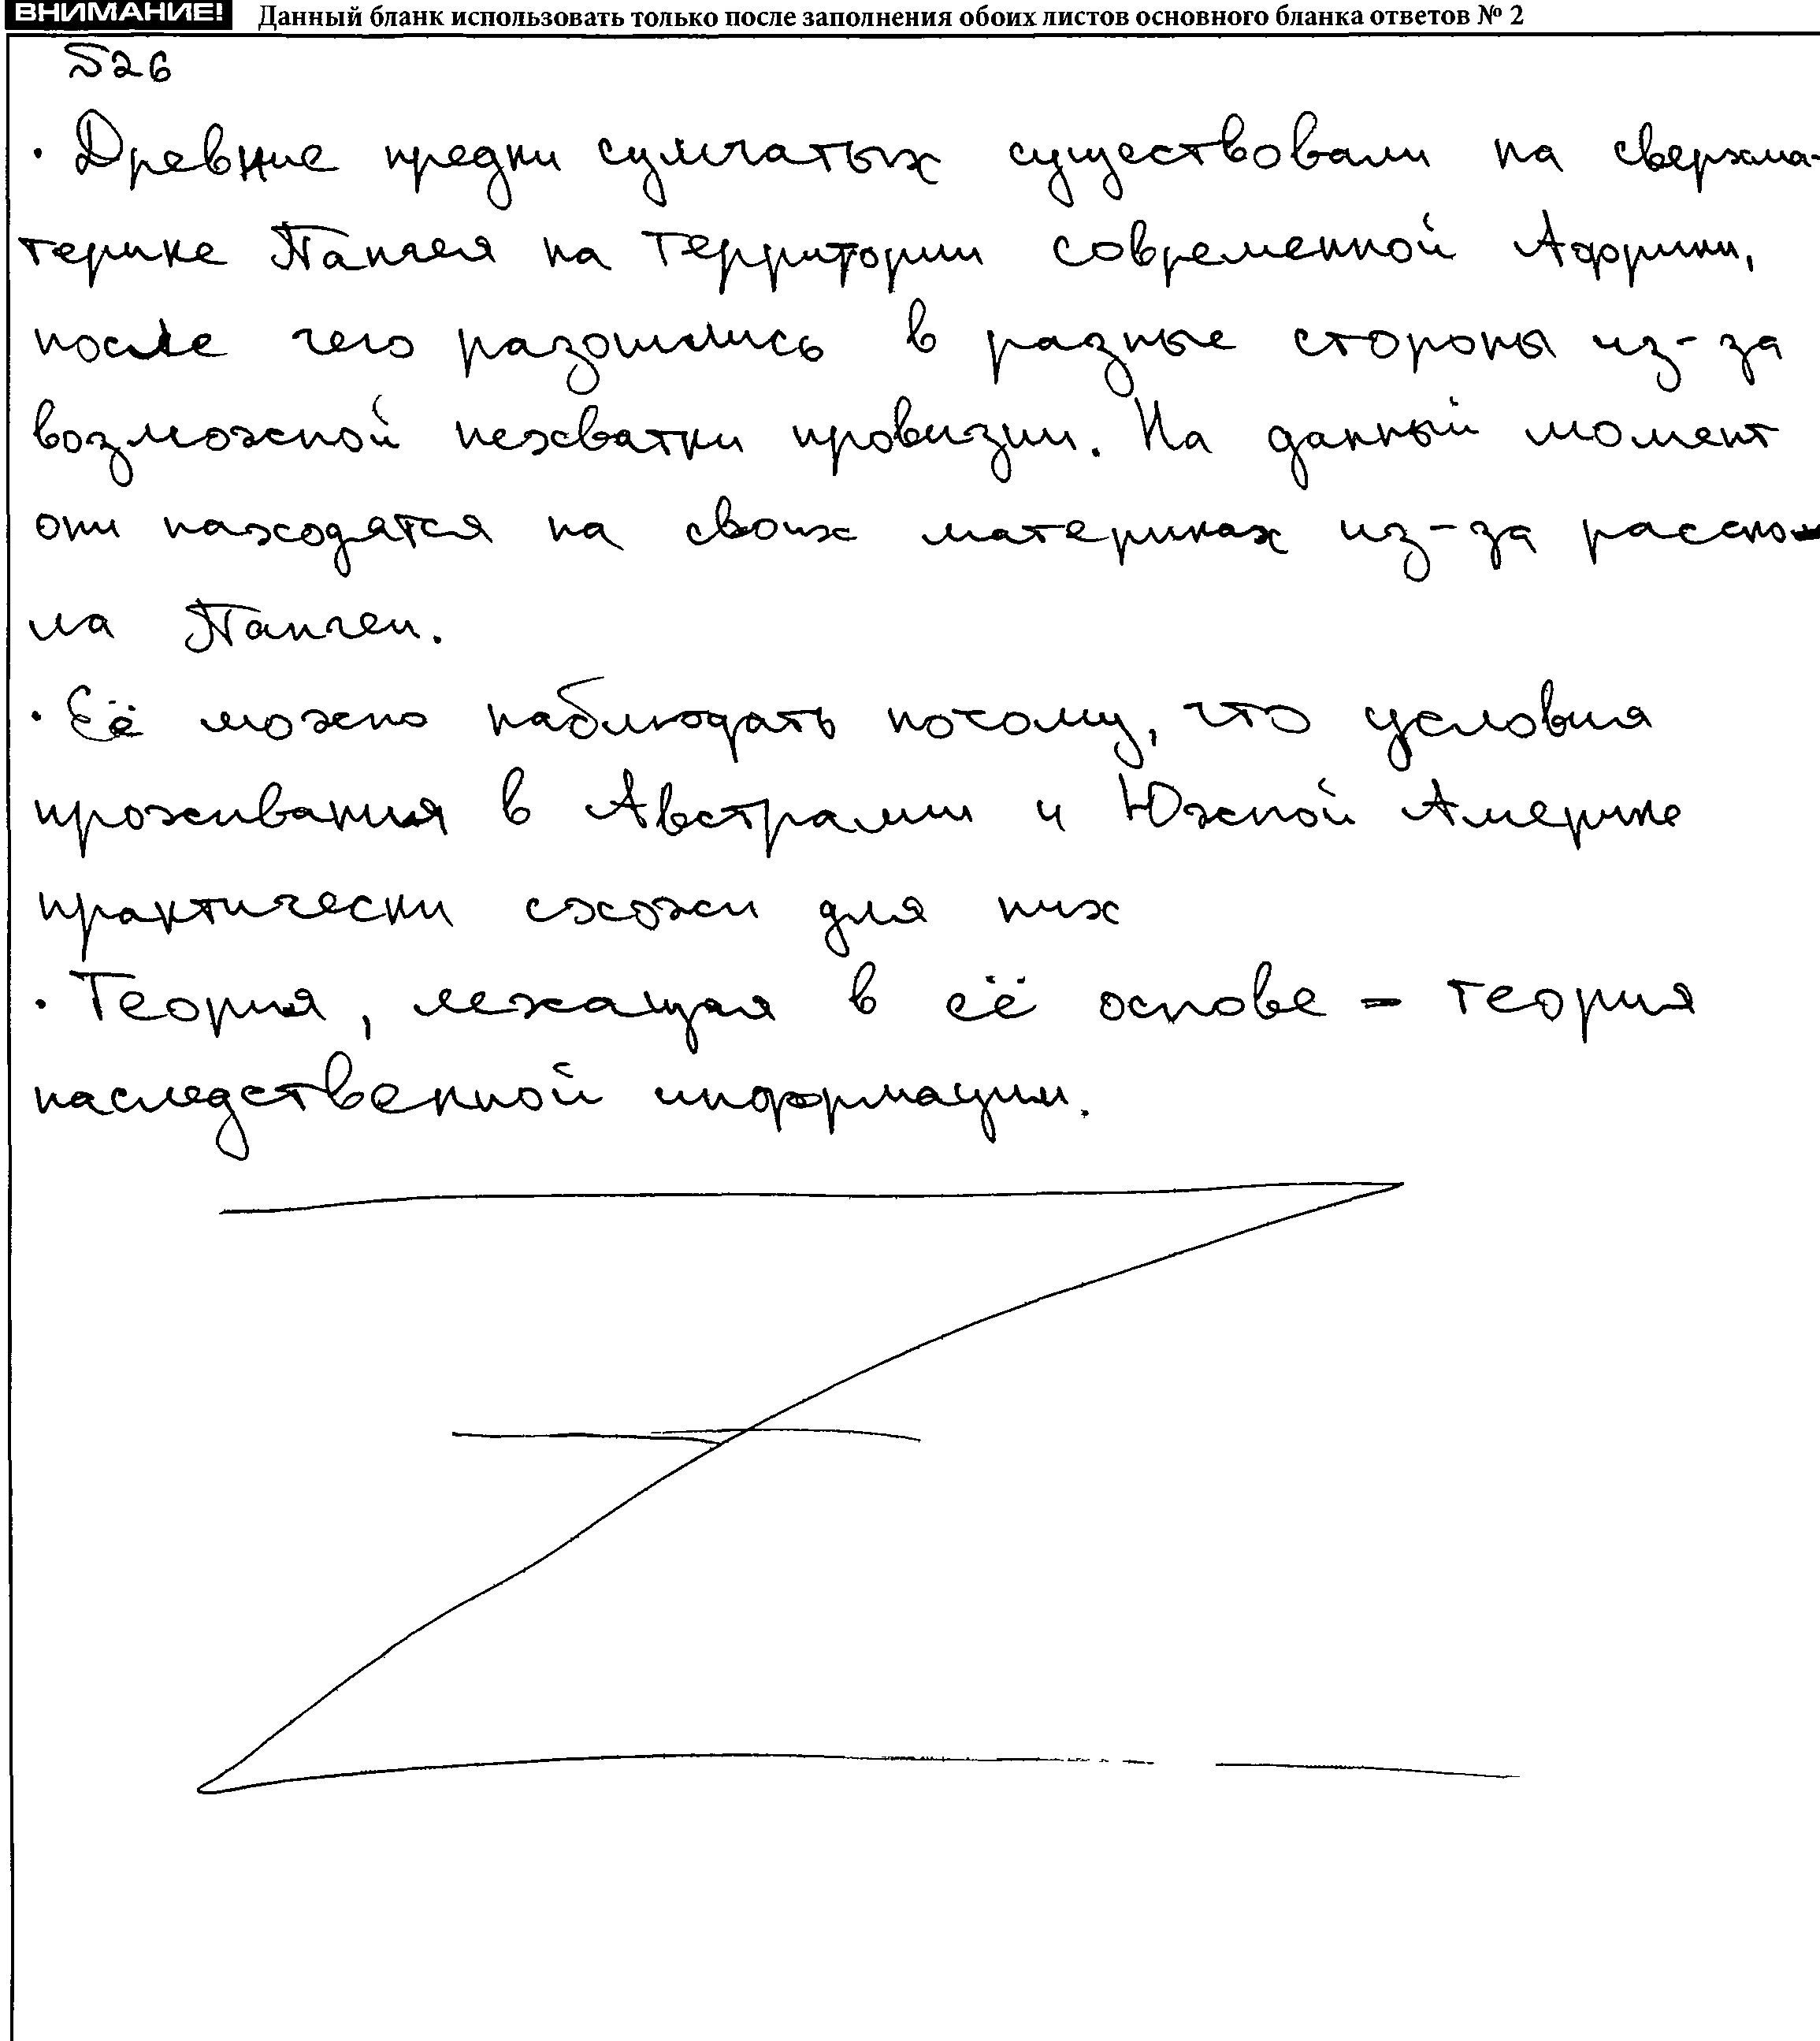 ВНИМАНИЕ! Данный бланк использовать только после заполнения обоих листов основного бланка ответов № 2
№26
· Древние предки сумчатых существовали на сверхма-
терике Пангея на территории современной Африки,
после чего разошлись в разные стороны из-за
возможной нехватки провизии. На данный момент
они находятся на своих материках из-за раско-
ла Пангеи.
· Её можно наблюдать потому, что условия
проживания в Австралии и Южной Америке
практически схожи для них
· Теория, лежащая в её основе – теория
наследственной информации.